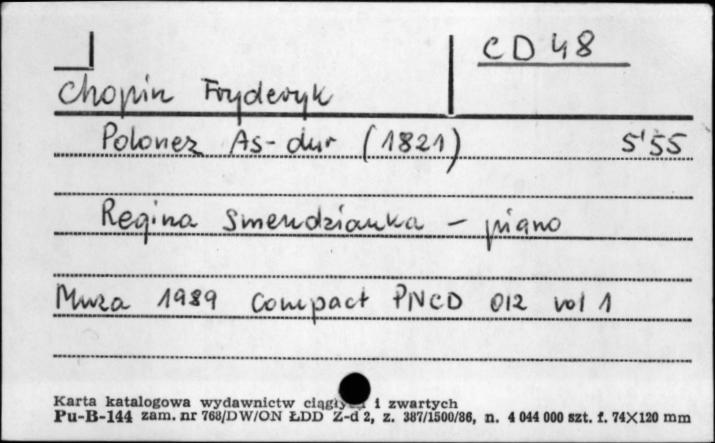 CD 48
Chopin Fryderyk
Polonez As-dur (1821) 5'55
Regina Smendzianka - piano
Muza 1989 Compact PNCD 012 vol 1
Karta katalogowa wydawnictw ciągłych i zwartych
Pu-B-144 zam. nr 768/DW/ON ŁDD Z-d 2, z. 387/1500/86, n. 4 044 000 szt. f. 74X120 mm